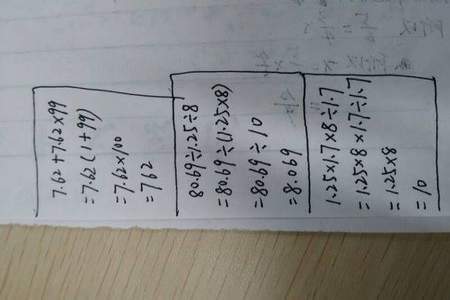 7.62+7.62×99
=7.62(1+99)
=7.62×100
=762
80.69÷1.25÷8
=80.69÷(1.25×8)
=80.69÷10
=8.069
1.25×1.7×8÷1.7
=1.25×8×1.7÷1.7
=1.25×8
=10